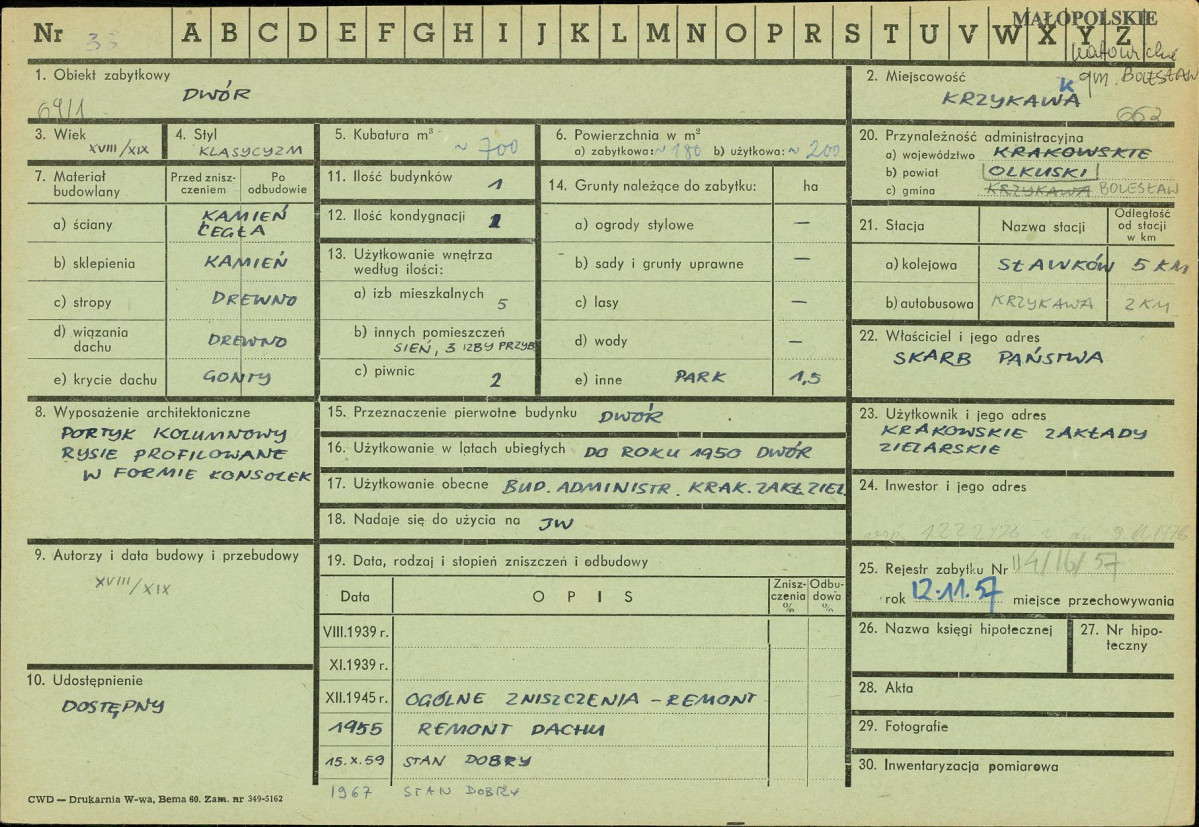 MAŁOPOLSKIE
Nr 33 A B C D E F G H I J K L M N O P R S T U V W X Y Z
katowickie
gm. BOLESŁAW
1. Obiekt zabytkowy
DWÓR
69/1
2. Miejscowość
K
KRZYKAWA
662
3. Wiek
XVIII/XIX
4. Styl
KLASYCYZM
5. Kubatura m³
~ 700
6. Powierzchnia w m²
a) zabytkowa: ~ 180 b) użytkowa: ~ 200
7. Materiał budowlany
Przed zniszczeniem
Po odbudowie
a) ściany KAMIEŃ
CEGŁA
b) sklepienia KAMIEŃ
c) stropy DREWNO
d) wiązania dachu DREWNO
e) krycie dachu GONTY
8. Wyposażenie architektoniczne
PORTYK KOLUMNOWY
RYSIE PROFILOWANE
W FORMIE KONSOLEK
9. Autorzy i data budowy i przebudowy
XVIII/XIX
10. Udostępnienie
DOSTĘPNY
11. Ilość budynków 1
12. Ilość kondygnacji 1
13. Użytkowanie wnętrza
według ilości:
a) izb mieszkalnych 5
b) innych pomieszczeń
SIEŃ, 3 IZBY PRZYB
c) piwnic 2
14. Grunty należące do zabytku: ha
a) ogrody stylowe —
b) sady i grunty uprawne —
c) lasy —
d) wody —
e) inne PARK 1,5
15. Przeznaczenie pierwotne budynku DWÓR
16. Użytkowanie w latach ubiegłych DO ROKU 1950 DWÓR
17. Użytkowanie obecne BUD. ADMINISTR. KRAK. ZAKŁ. ZIEL.
18. Nadaje się do użycia na JW
19. Data, rodzaj i stopień zniszczeń i odbudowy
Data OPIS Zniszczenia % Odbudowa %
VIII.1939 r.
XI.1939 r.
XII.1945 r. OGÓLNE ZNISZCZENIA – REMONT
1955 REMONT DACHU
15.X.59 STAN DOBRY
1967 STAN DOBRY
20. Przynależność administracyjna
a) województwo KRAKOWSKIE
b) powiat OLKUSKI
c) gmina KRZYKAWA BOLESŁAW
21. Stacja Nazwa stacji Odległość od stacji w km
a) kolejowa SŁAWKÓW 5 KM
b) autobusowa KRZYKAWA 2 KM
22. Właściciel i jego adres
SKARB PAŃSTWA
23. Użytkownik i jego adres
KRAKOWSKIE ZAKŁADY
ZIELARSKIE
24. Inwestor i jego adres
25. Rejestr zabytku Nr 114/16/57
rok 12.11.57 miejsce przechowywania
26. Nazwa księgi hipotecznej
27. Nr hipoteczny
28. Akta
29. Fotografie
30. Inwentaryzacja pomiarowa
CWD — Drukarnia W-wa, Bema 60. Zam. nr 349-5162